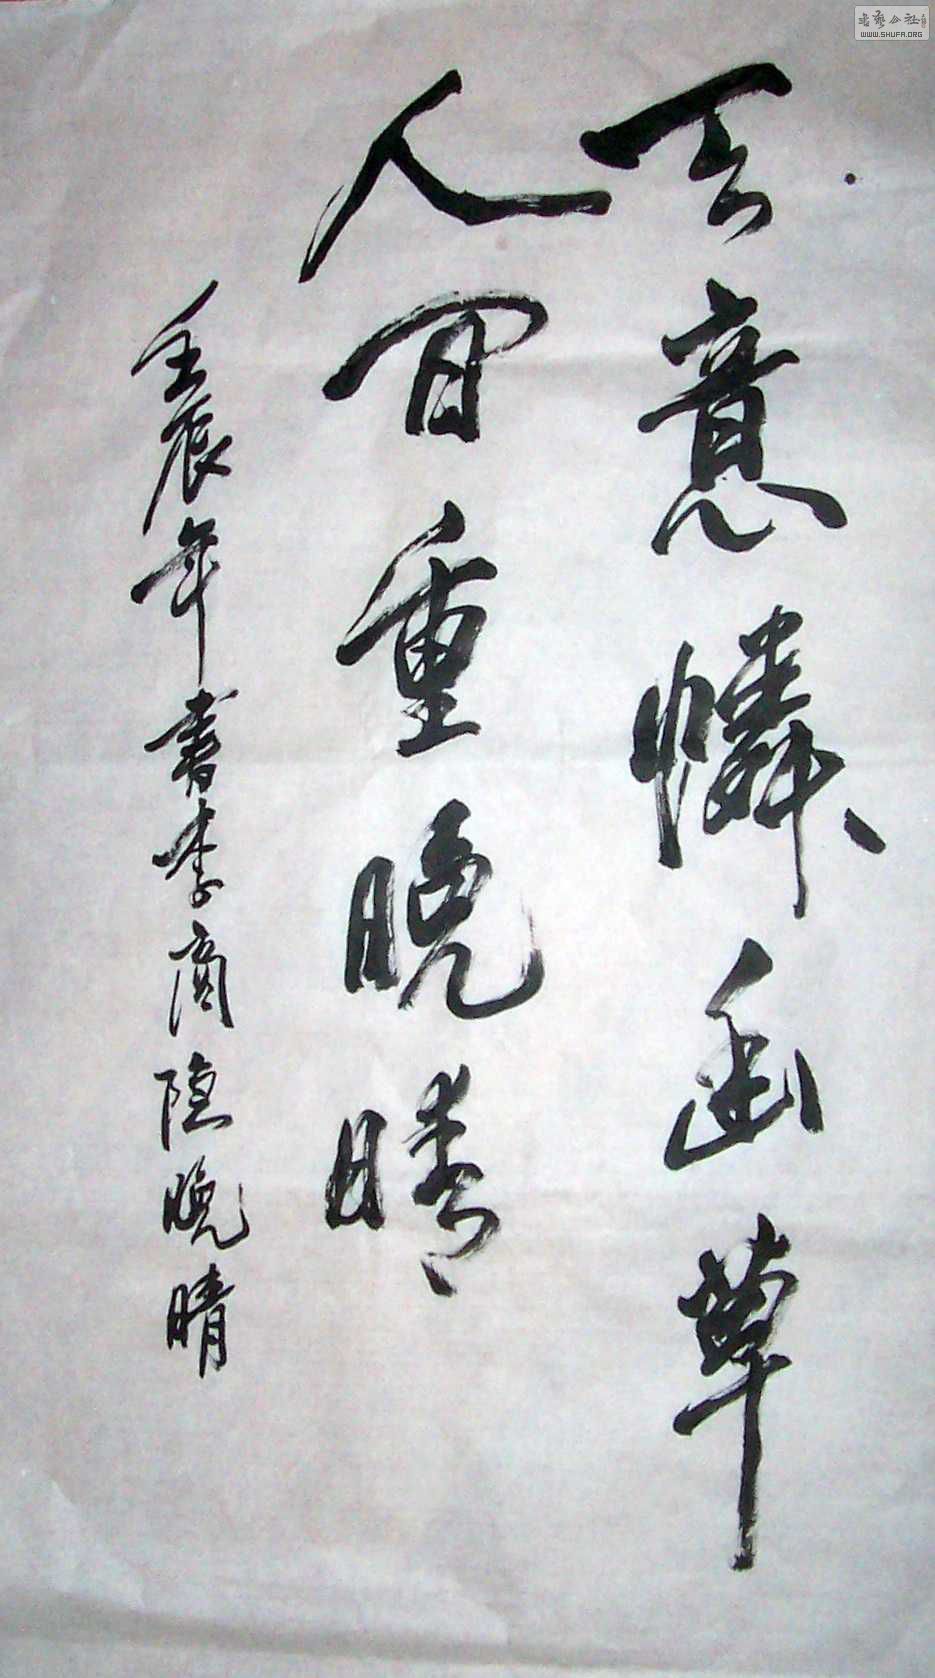 天意憐幽草
人间重晚晴
壬辰年書李商隐晚晴
书艺公社
WWW.SHUFA.ORG